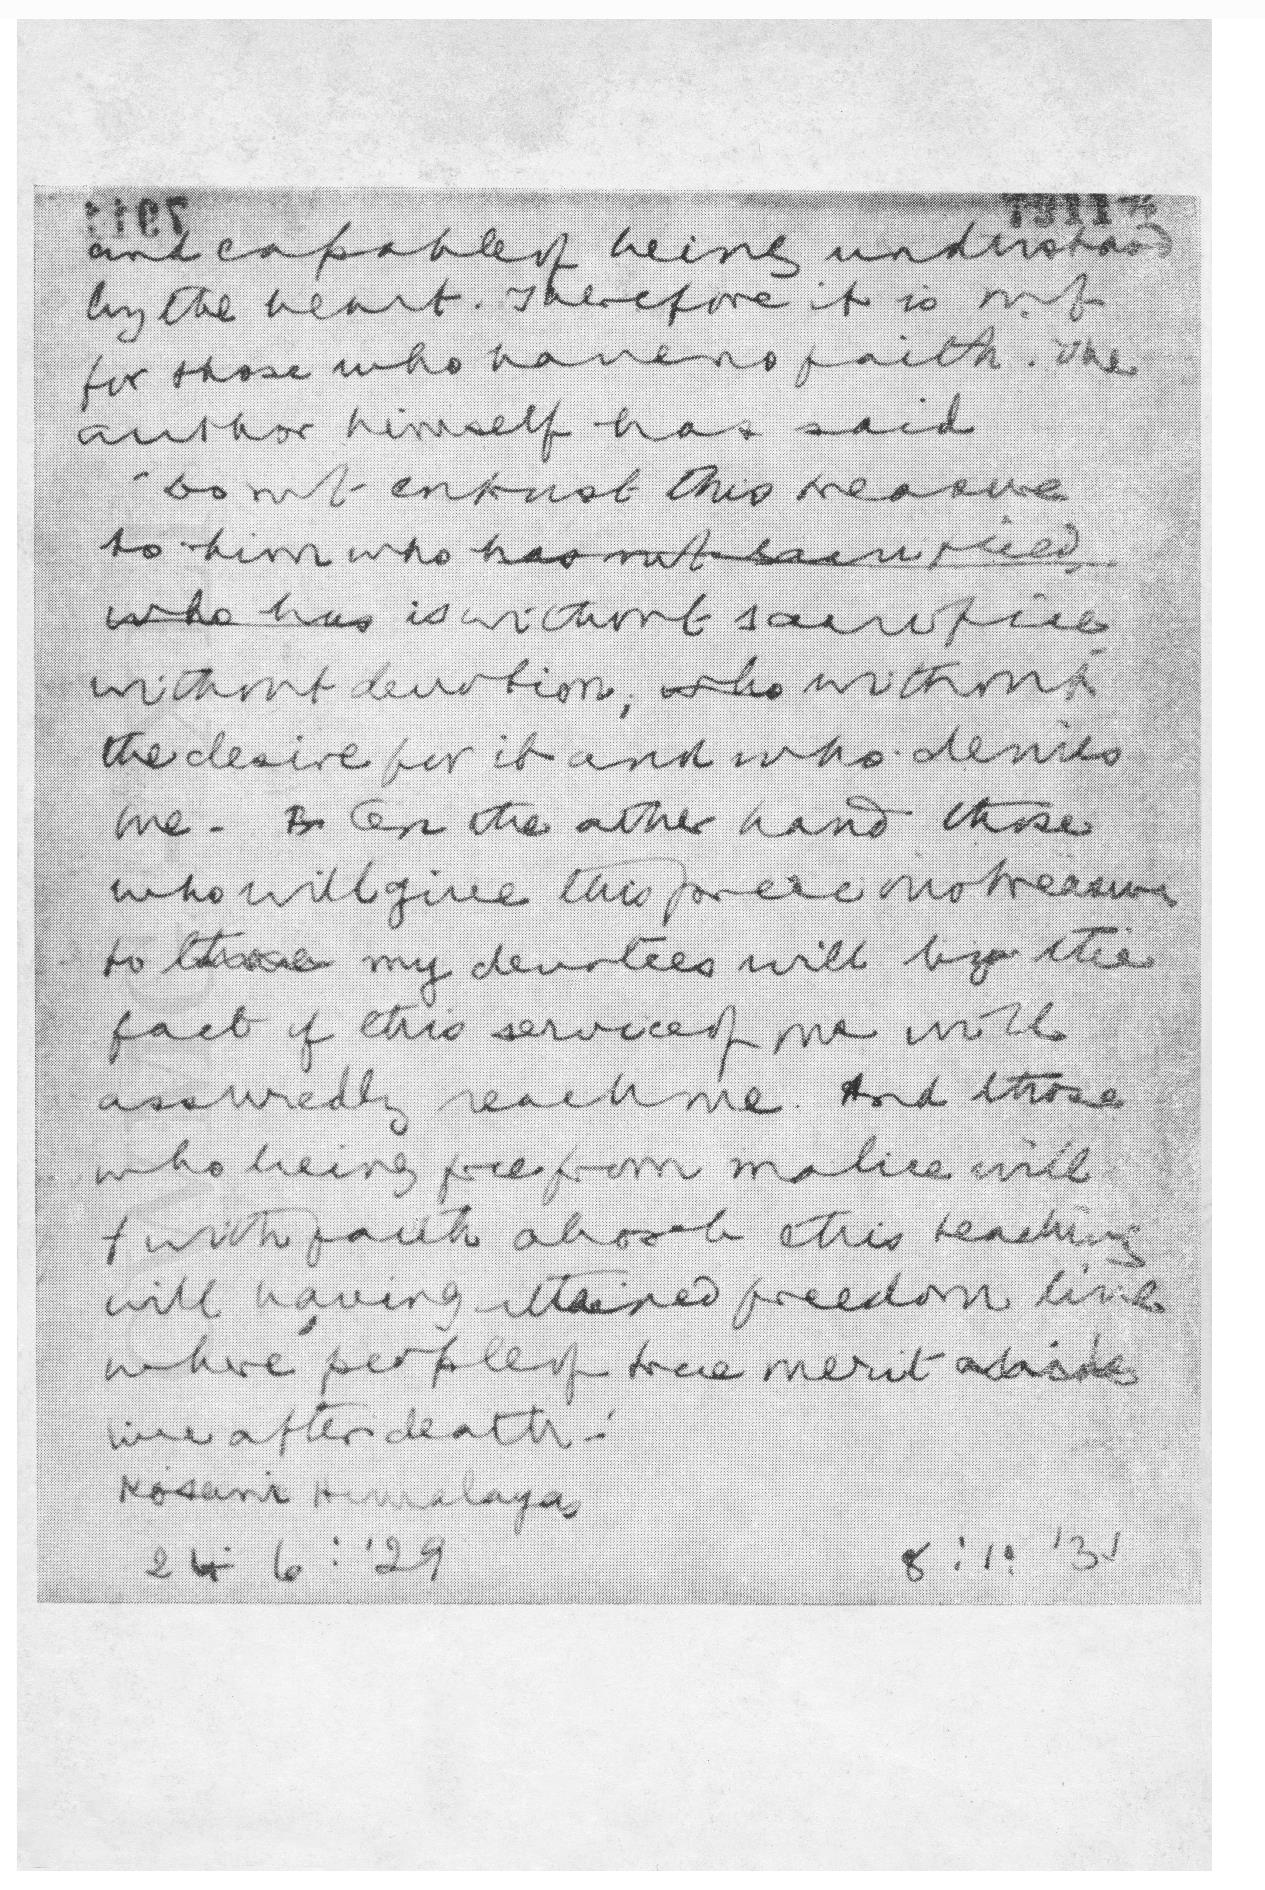 and capable of being understood
by the heart. Therefore it is not
for those who have no faith. The
author himself has said
"Do not entrust this treasure
to him who has not sacrificed,
who has is without sacrifice
without devotion, who without
the desire for it and who denies
me. B On the other hand those
who will give this precious treasure
to those my devotees will by the
fact of this service of me will
assuredly reach me. And those
who being free from malice will
with faith absorb this teaching
will having attained freedom live
where people of true merit abide
live after death."
Kosani Himalayas
24 6 : '29